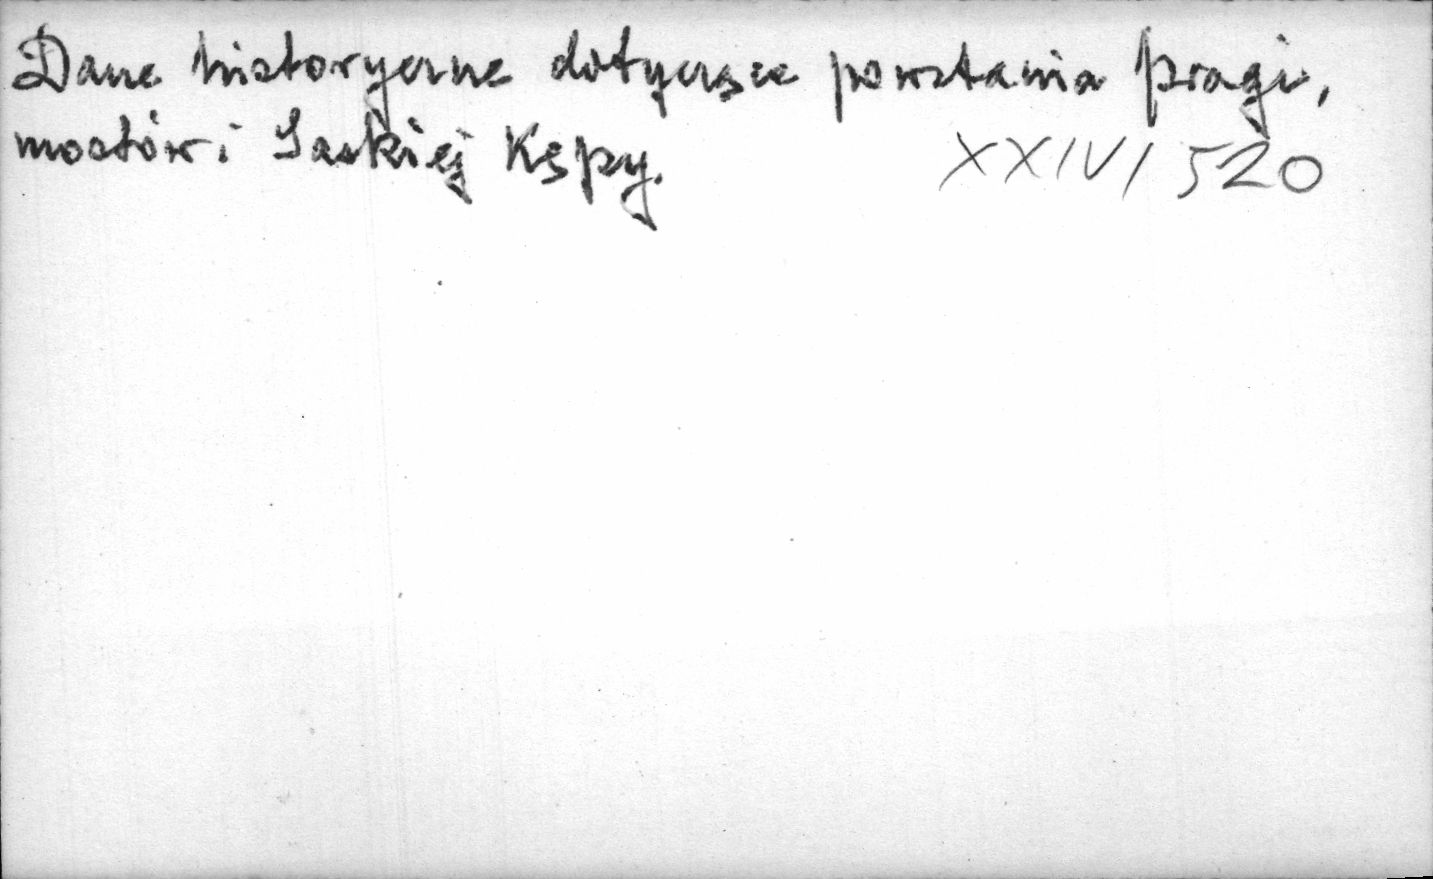 Dane historyczne dotyczące powstania Pragi,
mostów i Saskiej Kępy. XXIV/520